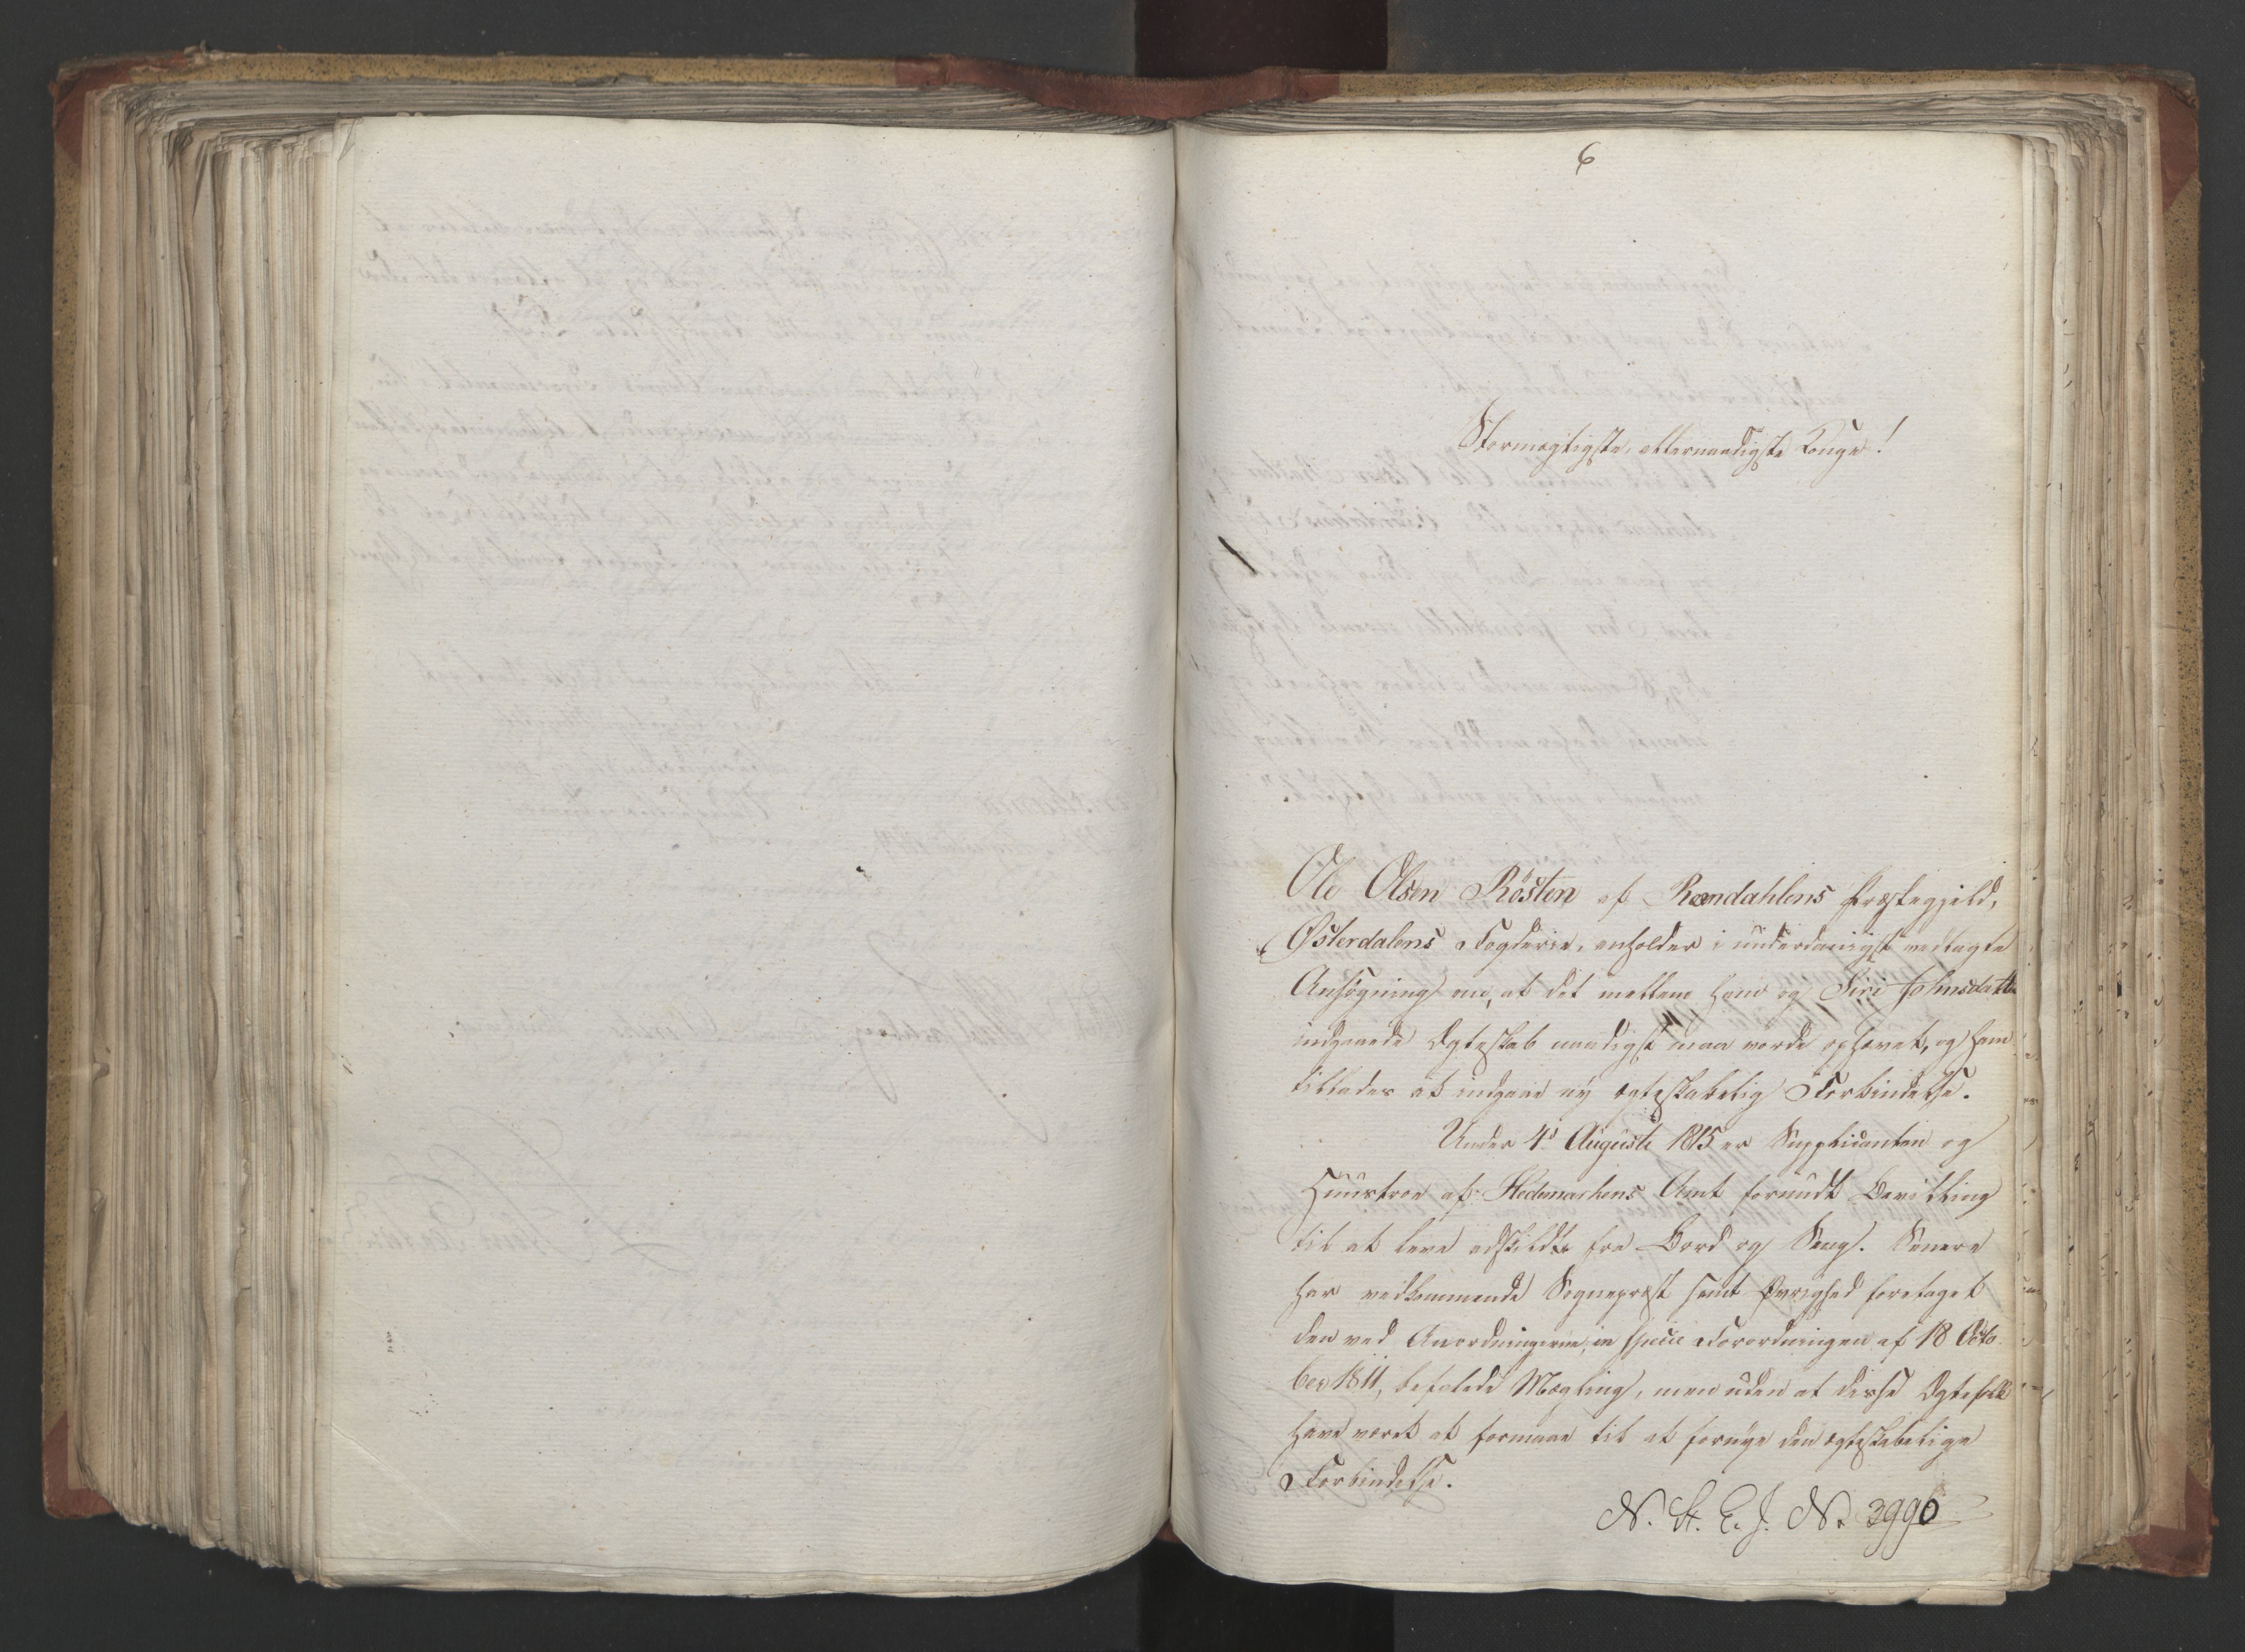 6
Stormægtigste, allernaadigste Konge!
Ole Olsen Rösten af Rændahlens Præstegjeld,
Østerdalens Fogderie, anholder i underdanigst vedlagte
Ansøgning om, at det mellem ham og Siri Johnsdatter
indgaaede Ægteskab naadigst maa vorde ophævet, og ham
tillades at indgaae ny ægteskabelig Forbindelse.
Under 4d Augusti 1815 er Supplicanten og
Huustroe af Hedemarkens Amt forundt Bevilling
til at leve adskildte fra Bord og Seng. Senere
har vedkommende Sognepræst samt Øvrighed foretaget
den ved Anordningerne, in specie Forordningen af 18 Octo
ber 1811, befalede Mægling, men uden at disse Ægtefolk
have været at formaae til at fornye den ægteskabelige
Forbindelse.
N. St. E. J. No. 3996